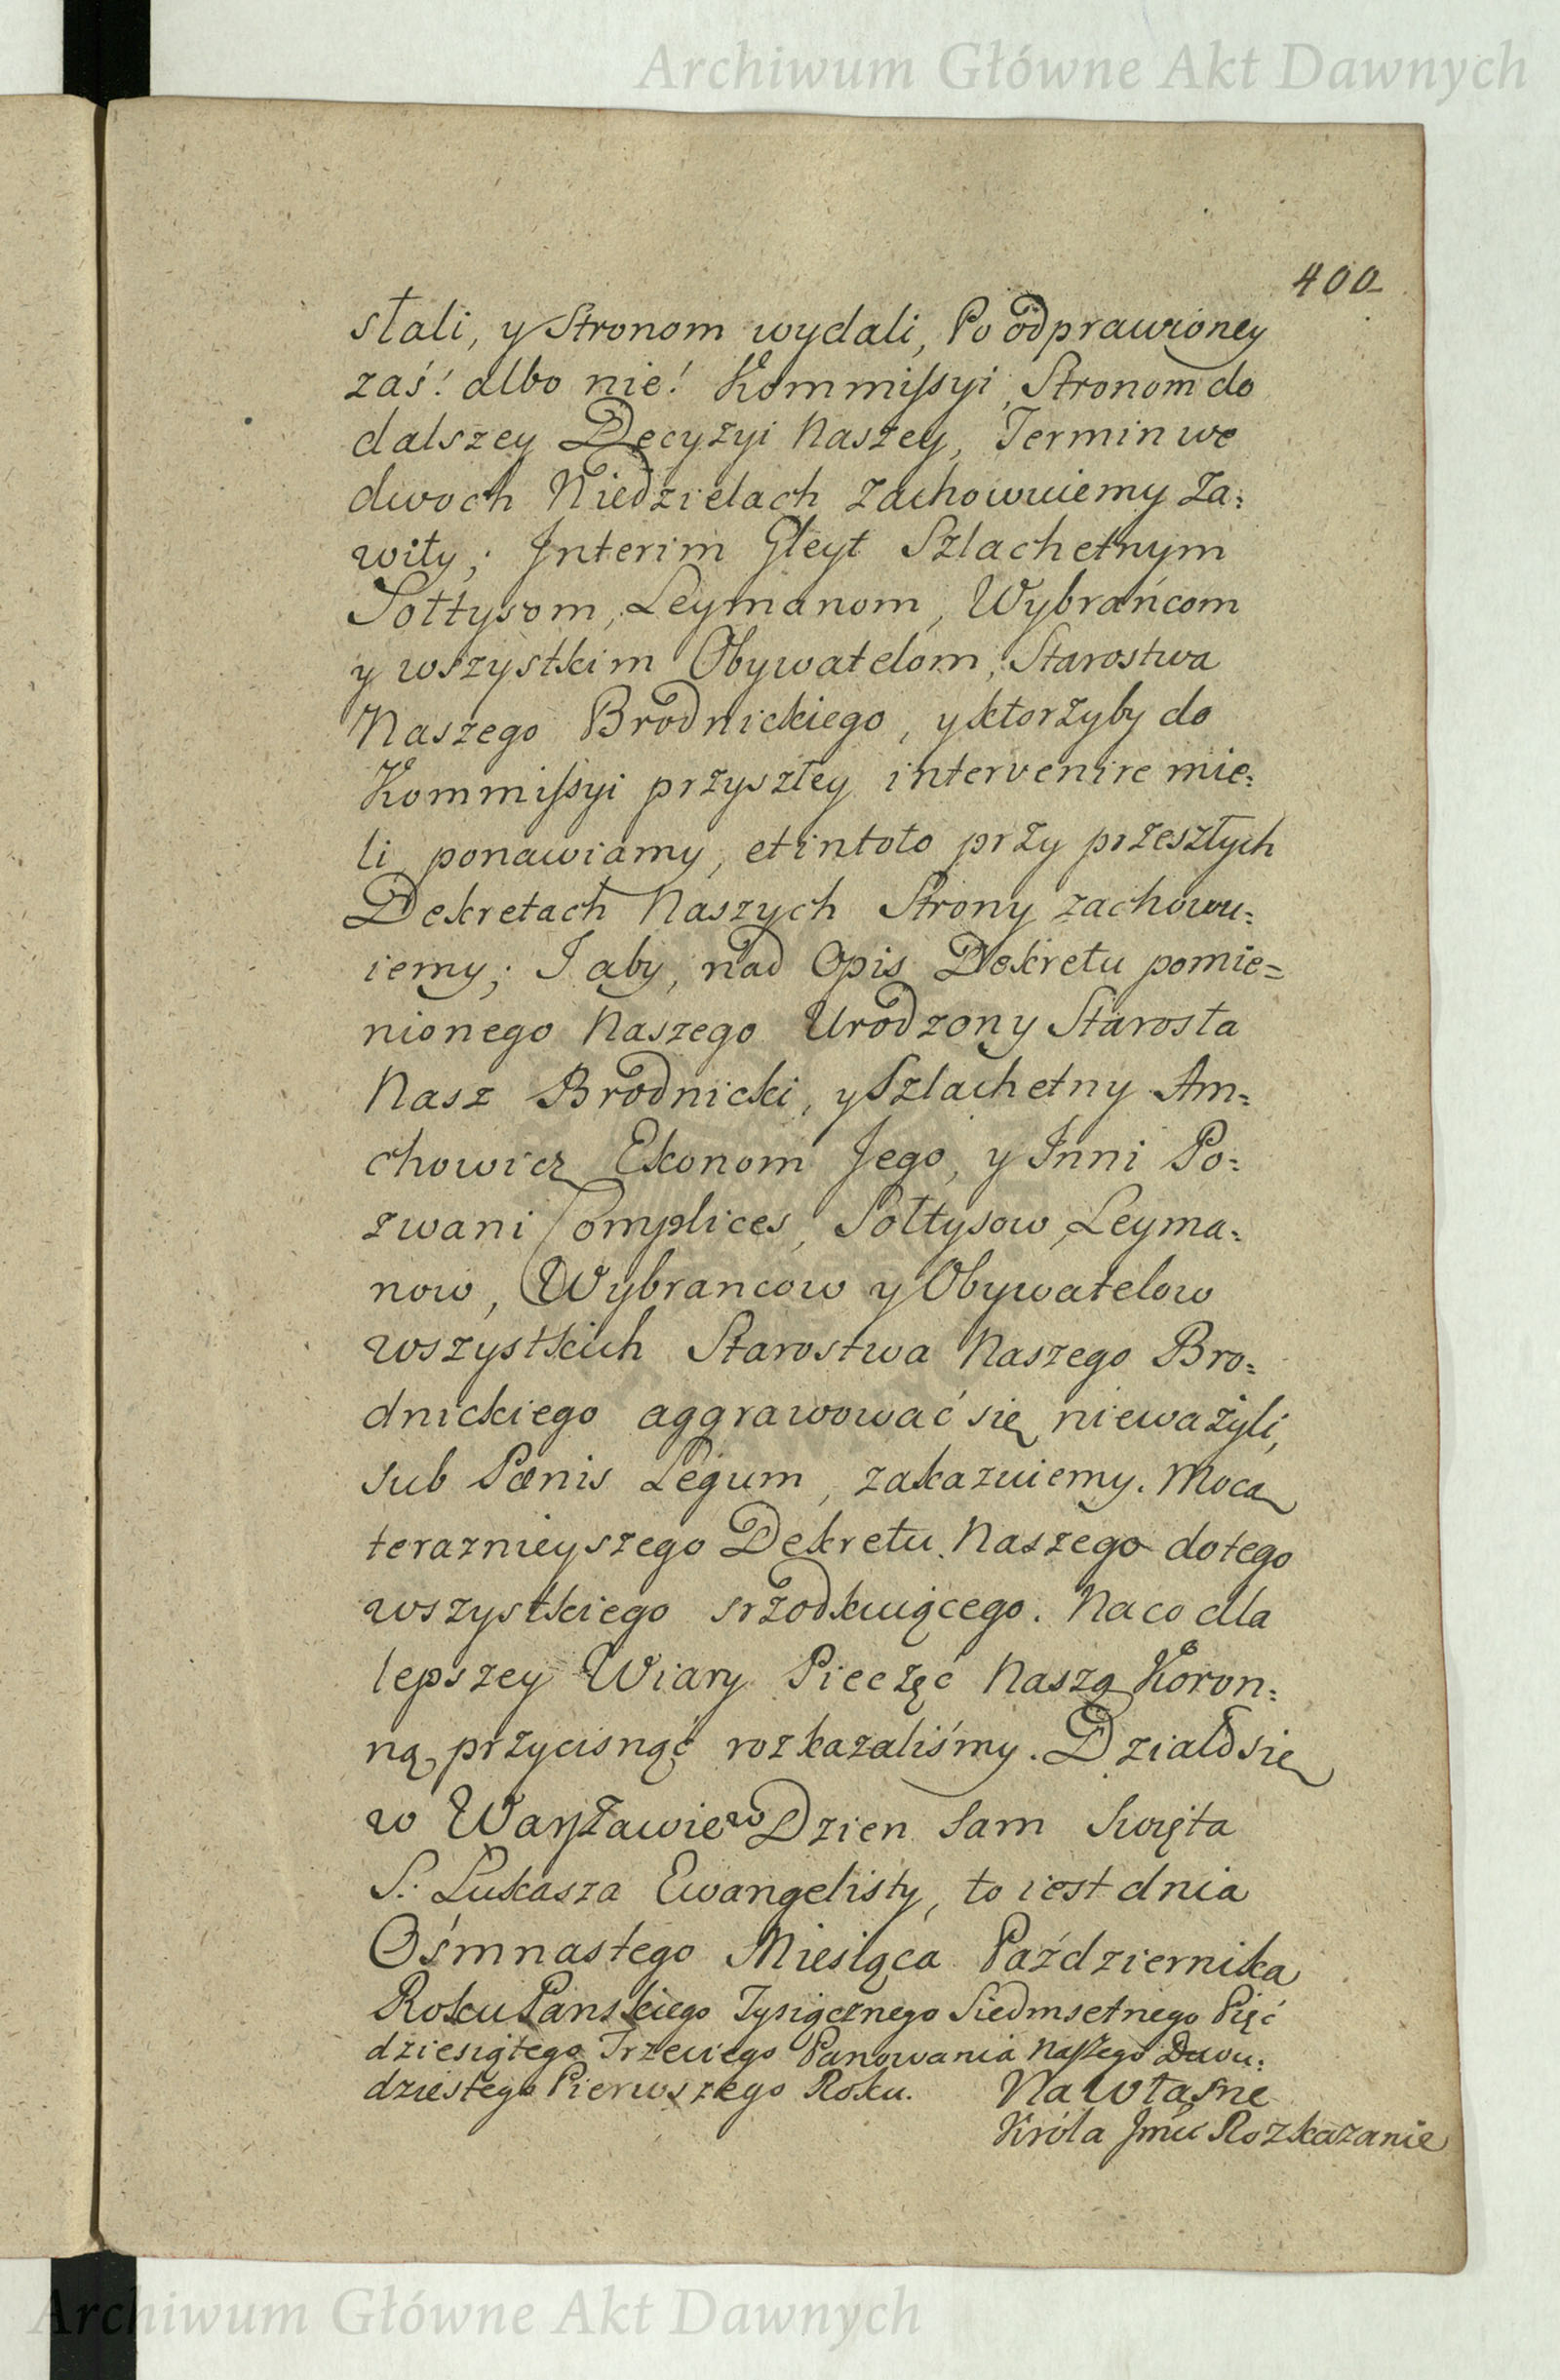 Archiwum Główne Akt Dawnych
400
stali, y Stronom wydali, Po odprawioney
zaś! albo nie! Kommissyi, Stronom do
dalszey Decyzyi Naszey, Termin we
dwoch Niedzielach zachowuiemy Za:
wity; Interim Gleyt Szlachetnym
Sołtysom, Leymanom, Wybrańcom
y wszystkim Obywatelom, Starostwa
Naszego Brodnickiego, y ktorzyby do
Kommissyi przyszłey intervenire mie:
li ponawiamy, et in toto przy przeszłych
Dekretach Naszych Strony zachowu:
iemy; I aby, nad Opis Dekretu pomie=
nionego Naszego Urodzony Starosta
Nasz Brodnicki, y Szlachetny Am=
chowicz Ekonom Jego, y Inni Po:
zwani Complices, Sołtysow, Leyma:
now, Wybrancow y Obywatelow
wszystkich Starostwa Naszego Bro:
dnickiego aggrawować się nieważyli,
sub Pænis Legum, zakazuiemy. Mocą
teraznieyszego Dekretu Naszego do tego
wszystkiego srzodkuiącego. Na co dla
lepszey Wiary Pieczęć Naszą Koron:
ną przycisnąć rozkazaliśmy. Działo się
w Warszawie w Dzien Sam Swięta
S. Łukasza Ewangelisty, to iest dnia
Ośmnastego Miesiąca Października
Roku Panskiego Tysiącznego Siedmsetnego Pięć
dziesiątego Trzeciego Panowania Naszego Dwu:
dziestego Pierwszego Roku. Na Własne
Króla Jmći Rozkazanie
Archiwum Główne Akt Dawnych